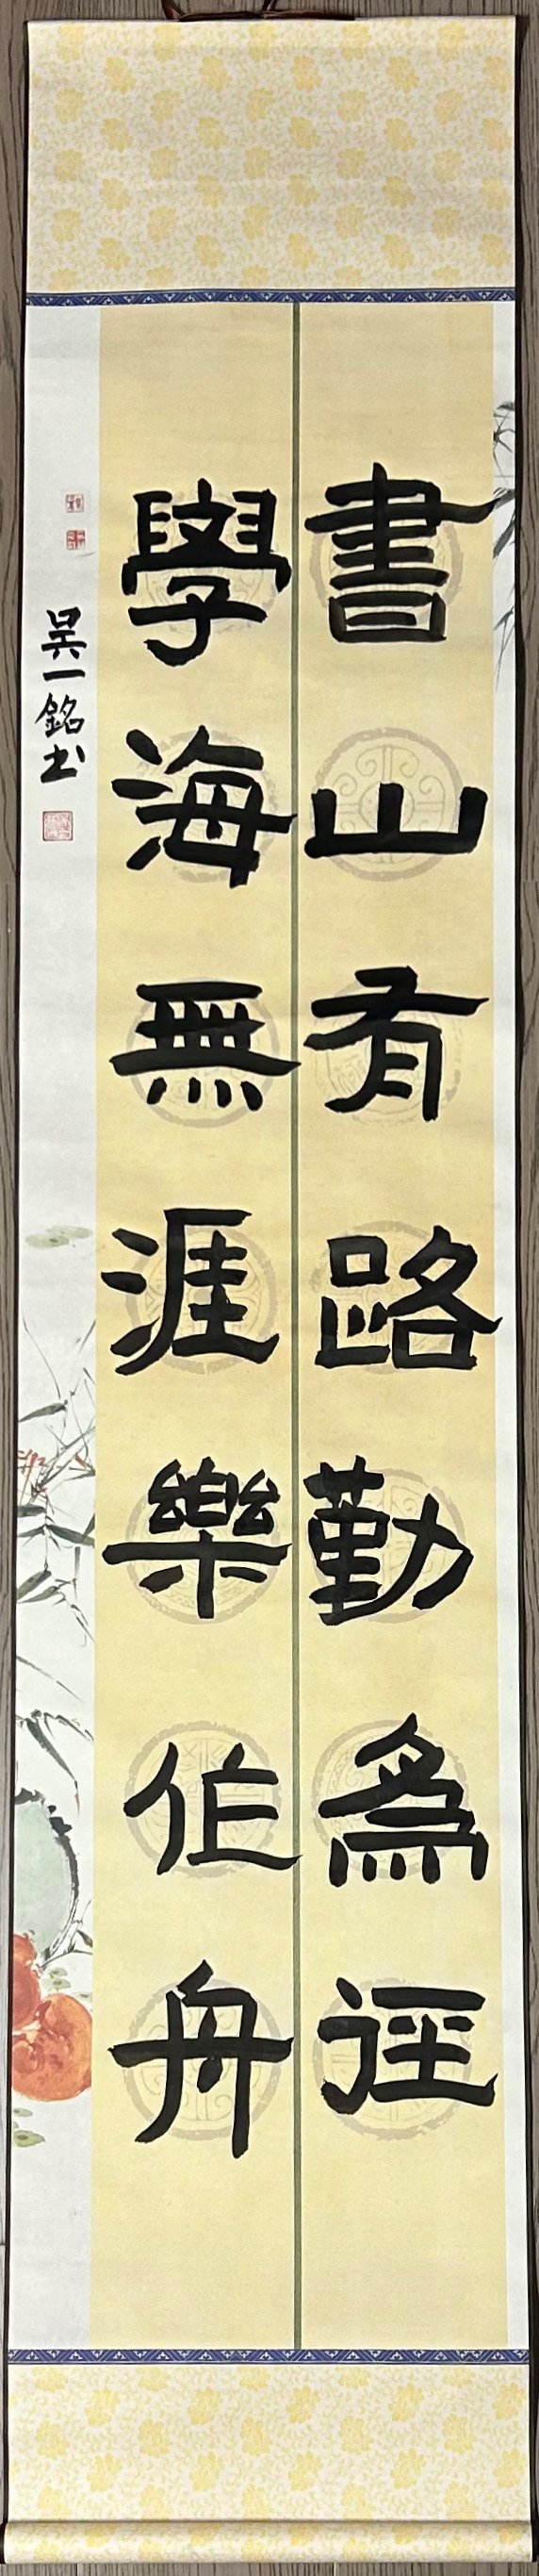 書山有路勤為逕
學海無涯樂作舟
吳一銘书